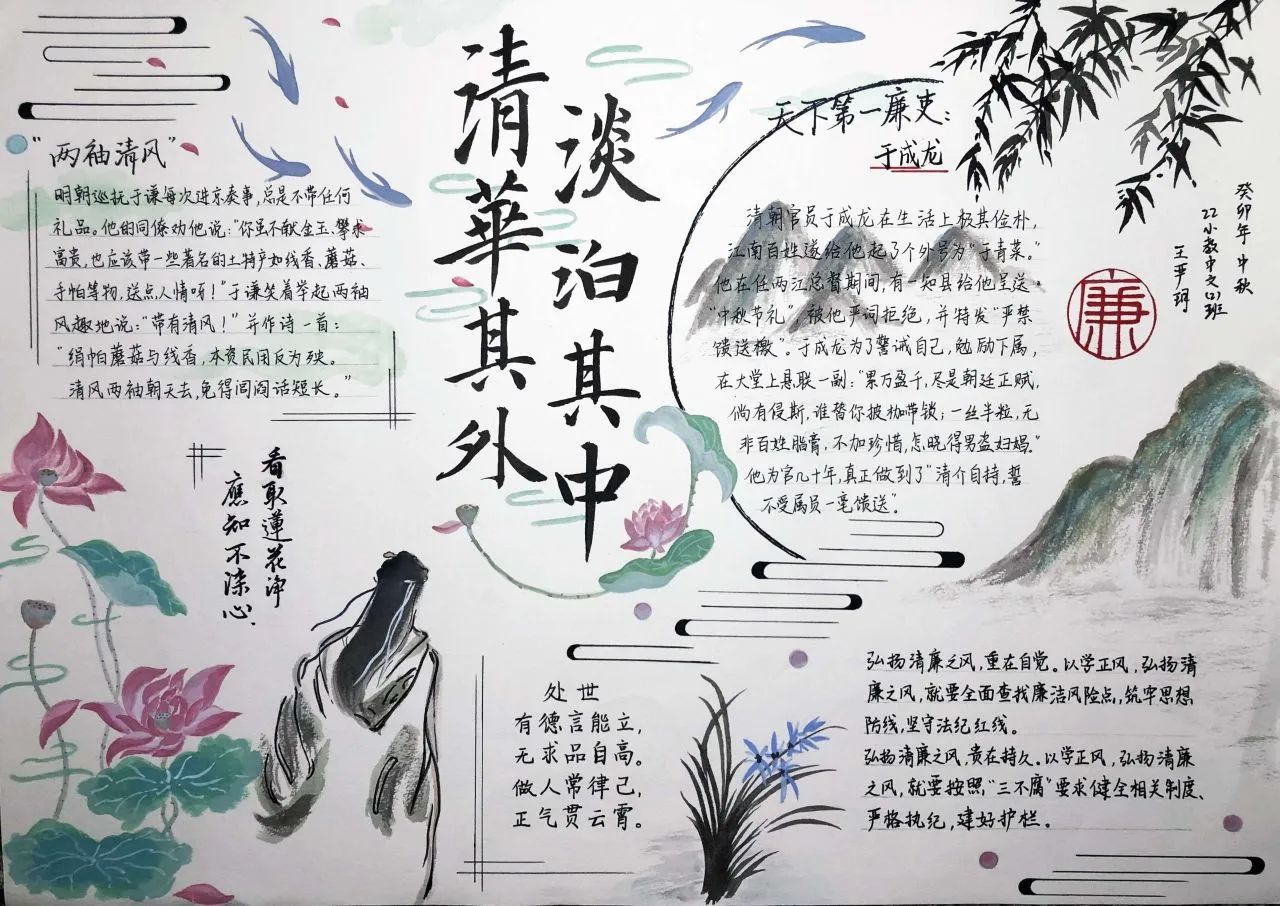 清華其外
淡泊其中
“两袖清风”
明朝巡抚于谦每次进京奏事，总是不带任何
礼品。他的同僚劝他说：“你虽不献金玉、攀求
富贵，也应该带一些著名的土特产如线香、蘑菇、
手帕等物，送点人情呀！”于谦笑着举起两袖
风趣地说：“带有清风！”并作诗一首：
“绢帕蘑菇与线香，本资民用反为殃。
清风两袖朝天去，免得闾阎话短长。”
天下第一廉吏：
于成龙
清朝官员于成龙在生活上极其俭朴，
江南百姓遂给他起了个外号为“于青菜。”
他在任两江总督期间，有一知县给他呈送
“中秋节礼”被他严词拒绝，并特发“严禁
馈送檄”。于成龙为了警诫自己，勉励下属，
在大堂上悬联一副：“累万盈千，尽是朝廷正赋，
倘有侵斯，谁替你披枷带锁；一丝半粒，无
非百姓脂膏，不加珍惜，怎晓得男盗妇娼。”
他为官几十年，真正做到了“清介自持，誓
不受属员一毫馈送”。
癸卯年中秋
22小教中文(2)班
廉
看取蓮花净
應知不染心.
处世
有德言能立，
无求品自高。
做人常律己，
正气贯云霄。
弘扬清廉之风，重在自觉。以学正风，弘扬清
廉之风，就要全面查找廉洁风险点，筑牢思想
防线，坚守法纪红线。
弘扬清廉之风，贵在持久。以学正风，弘扬清廉
之风，就要按照“三不腐”要求健全相关制度、
严格执纪，建好护栏。